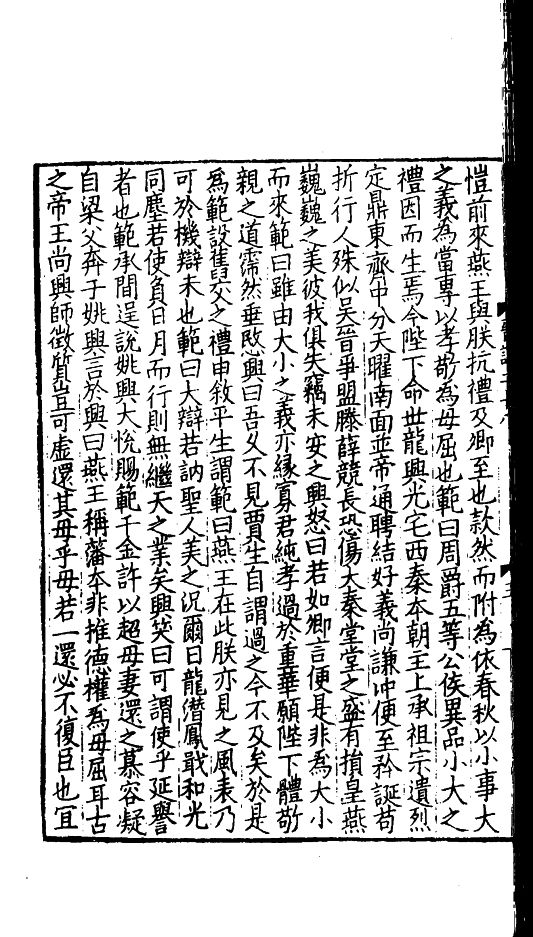 愷前來燕王與朕抗禮及卿至也款然而附為依春秋以小事大
之義為當專以孝敬為母屈也範曰周爵五等公侯異品小大之
禮因而生焉今陛下命世龍興光宅西秦本朝王上承祖宗遺烈
定鼎東齊中分天曜南面並帝通聘結好義尚謙沖便至矜誕苟
折行人殊似吳晉爭盟滕薛競長恐傷大秦堂堂之盛有損皇燕
巍巍之美彼我俱失竊未安之興怒曰若如卿言便是非為大小
而來範曰雖由大小之義亦縁寡君純孝過於重華願陛下體敬
親之道霈然垂愍興曰吾乆不見賈生自謂過之今不及矣於是
為範設舊交之禮申敘平生謂範曰燕王在此朕亦見之風表乃
可於機辯未也範曰大辯若訥聖人美之况爾日龍潛鳳戢和光
同塵若使負日月而行則無繼天之業矣興笑曰可謂使乎延譽
者也範承間逞說姚興大悅賜範千金許以超母妻還之慕容凝
自梁父奔于姚興言於興曰燕王稱藩本非推德權為母屈耳古
之帝王尚興師徵質豈可虛還其母乎母若一還必不復臣也宜